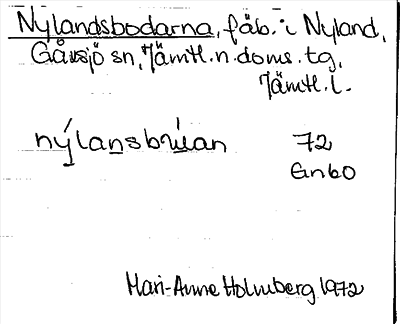 Nylandsbodarna, fäb. i Nyland,
Gåxsjö sn, Jämtl. n. doms. tg,
Jämtl. l.
nýlansbru̇́an 72
Enbo
Mari-Anne Holmberg 1972